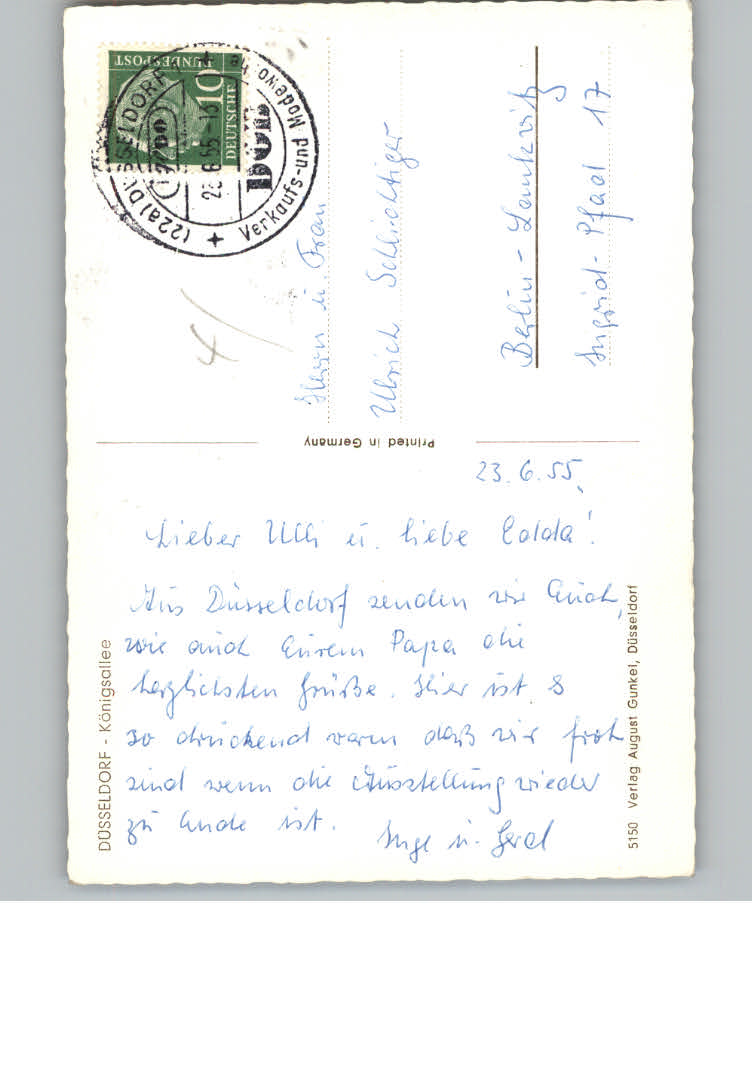 23.6.55.
Lieber Ulli u. liebe Edda!
Aus Düsseldorf senden wir Euch,
wie auch Eurem Papa die
herzlichsten Grüße. Hier ist es
so drückend warm daß wir froh
sind wenn die Ausstellung wieder
zu Ende ist.
Inge u. Gerd
Herrn u. Frau
Ulrich Schlichtiger
Berlin-Lankwitz
Ingrid-Pfad 17
DÜSSELDORF - Königsallee
5150 Verlag August Gunkel, Düsseldorf
Printed in Germany
DEUTSCHE
BUNDESPOST
10
(22a) DÜSSELDORF
6.55-13
Verkaufs-und Modewoche